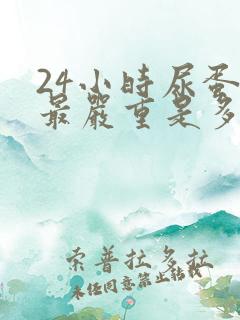 24小時尿蛋
最嚴重是多
索普拉多拉
未经同意禁止转载